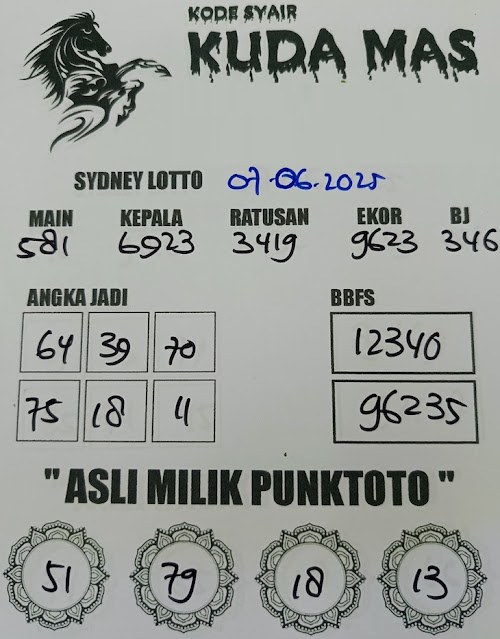 KODE SYAIR
KUDA MAS
SYDNEY LOTTO 07-06-2025
MAIN KEPALA RATUSAN EKOR BJ
581 6923 3419 9623 346
ANGKA JADI BBFS
64 39 70 12340
75 18 11 96235
" ASLI MILIK PUNKTOTO "
51 79 18 13